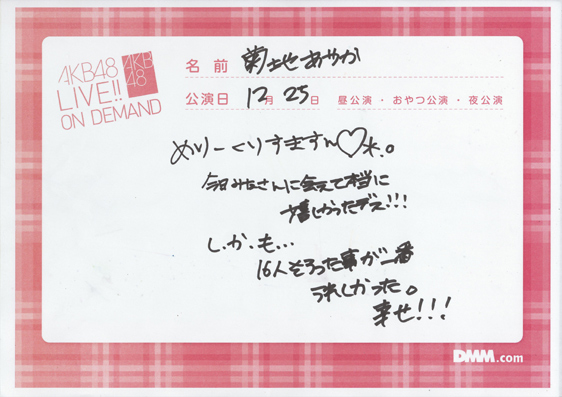 AKB48
LIVE!!
ON DEMAND
AKB
48
名前 菊地あやか
公演日 12月25日 昼公演・おやつ公演・夜公演
めりーくりすますん♡*。
今日みなさんに会えて本当に
嬉しかったデス!!!
し.か.も...
16人そろった事が一番
うれしかった。
幸せ!!!
DMM.com